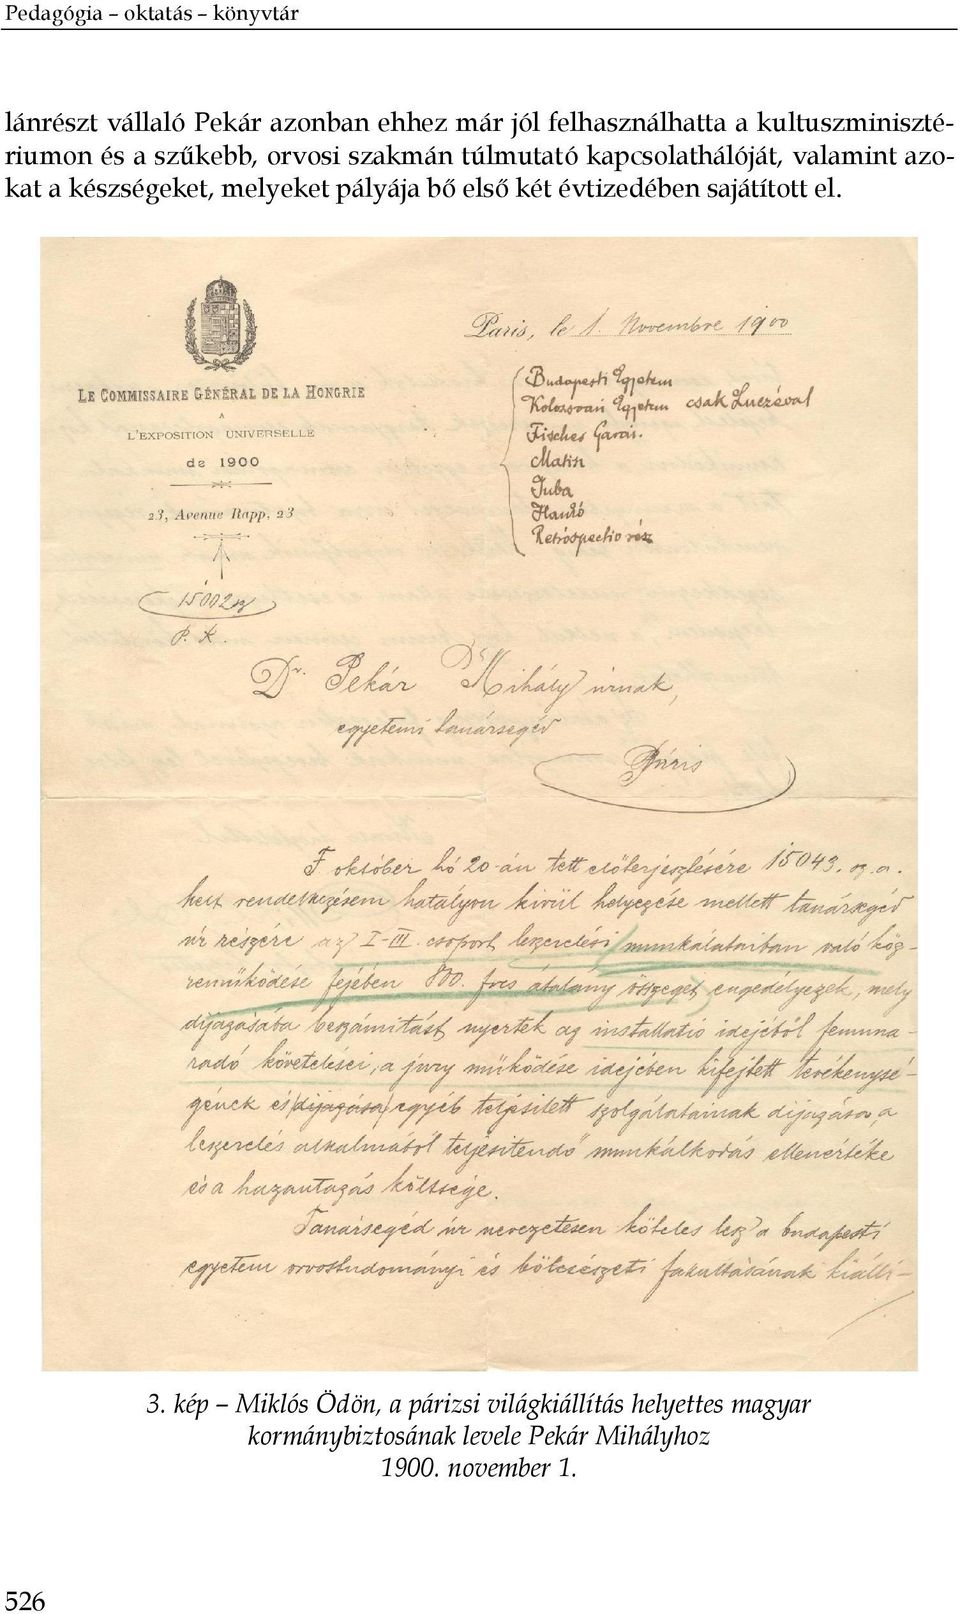 Pedagógia – oktatás – könyvtár
lánrészt vállaló Pekár azonban ehhez már jól felhasználhatta a kultuszminiszté-
riumon és a szűkebb, orvosi szakmán túlmutató kapcsolathálóját, valamint azo-
kat a készségeket, melyeket pályája bő első két évtizedében sajátított el.
Paris, le 1. Novembre 1900
LE COMMISSAIRE GÉNÉRAL DE LA HONGRIE
A
L'EXPOSITION UNIVERSELLE
de 1900
23, Avenue Rapp, 23
Budapesti Egyetem
Kolozsvári Egyetem csak Luczával
Fischer Garai.
Matin
Juba
Hankó
Retrospectio rész
15002 sz
P. K.
Dr. Pekár Mihály úrnak,
egyetemi tanársegéd
Páris
F október hó 20-án tett előterjesztésére 15043. sz. a.
kelt rendelkezésem hatályon kívül helyezése mellett tanársegéd
úr részére az I-III. csoport leszerelési munkálataiban való köz-
reműködése fejében 800. frcs átalány összeget engedélyezek, mely
díjazásába beszámítást nyertek az installatio idejéből fennma-
radó követelései, a jury működése idejében kifejtett tevékenysé-
gének és díjazása egyéb teljesített szolgálatainak díjazása, a
leszerelés alkalmából teljesítendő munkálkodás ellenértéke
és a hazautazás költsége.
Tanársegéd úr nevezetesen köteles lesz a budapesti
egyetem orvostudományi és bölcsészeti fakultásának kiállí-
3. kép – Miklós Ödön, a párizsi világkiállítás helyettes magyar
kormánybiztosának levele Pekár Mihályhoz
1900. november 1.
526